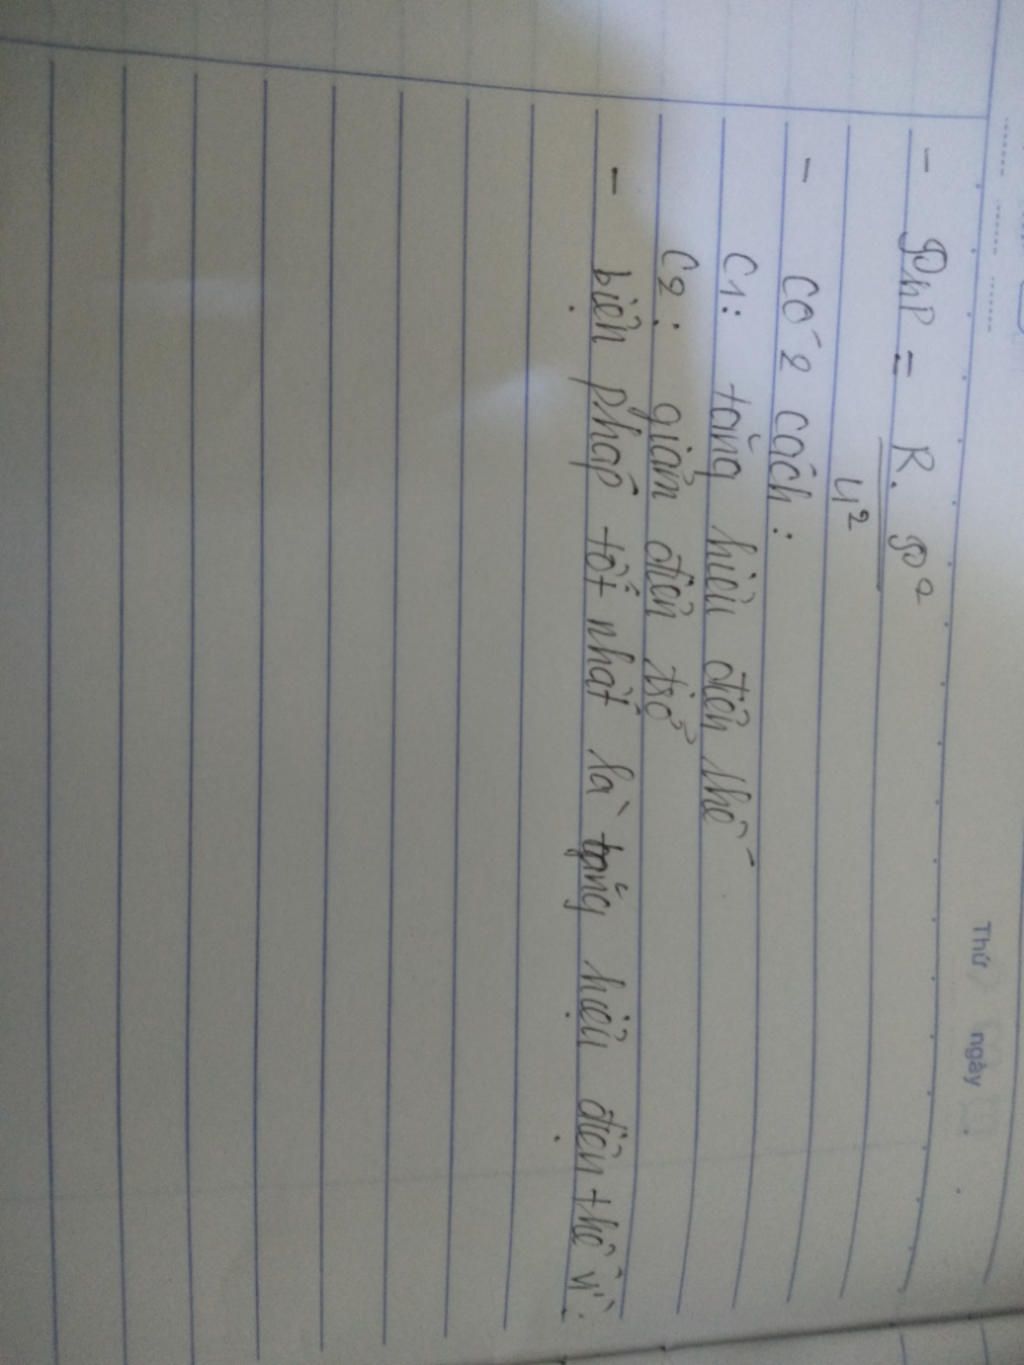 Thứ ngày
- 𝒫hP = R. 𝒫²
U²
- Có 2 cách:
C1: tăng hiệu điện thế
C2: giảm điện trở
- biện pháp tốt nhất là tăng hiệu điện thế vì: